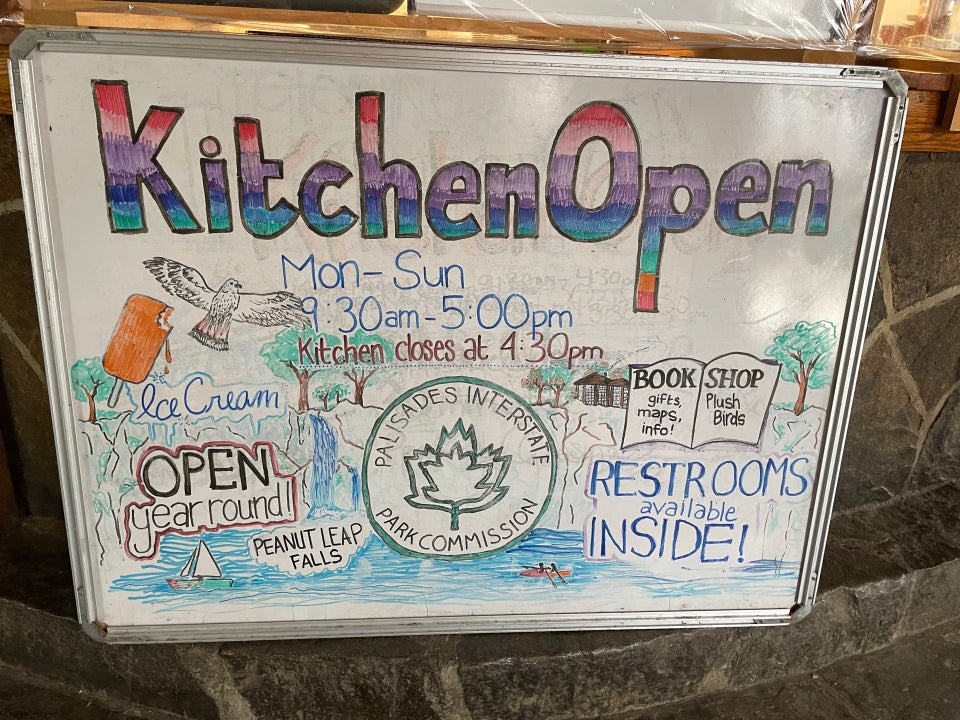 Kitchen Open
Mon-Sun
9:30am-5:00pm
Kitchen closes at 4:30pm
Ice Cream
BOOK SHOP
gifts,
maps,
info!
Plush
Birds
PALISADES INTERSTATE
PARK COMMISSION
OPEN
year round!
PEANUT LEAP
FALLS
RESTROOMS
available
INSIDE!